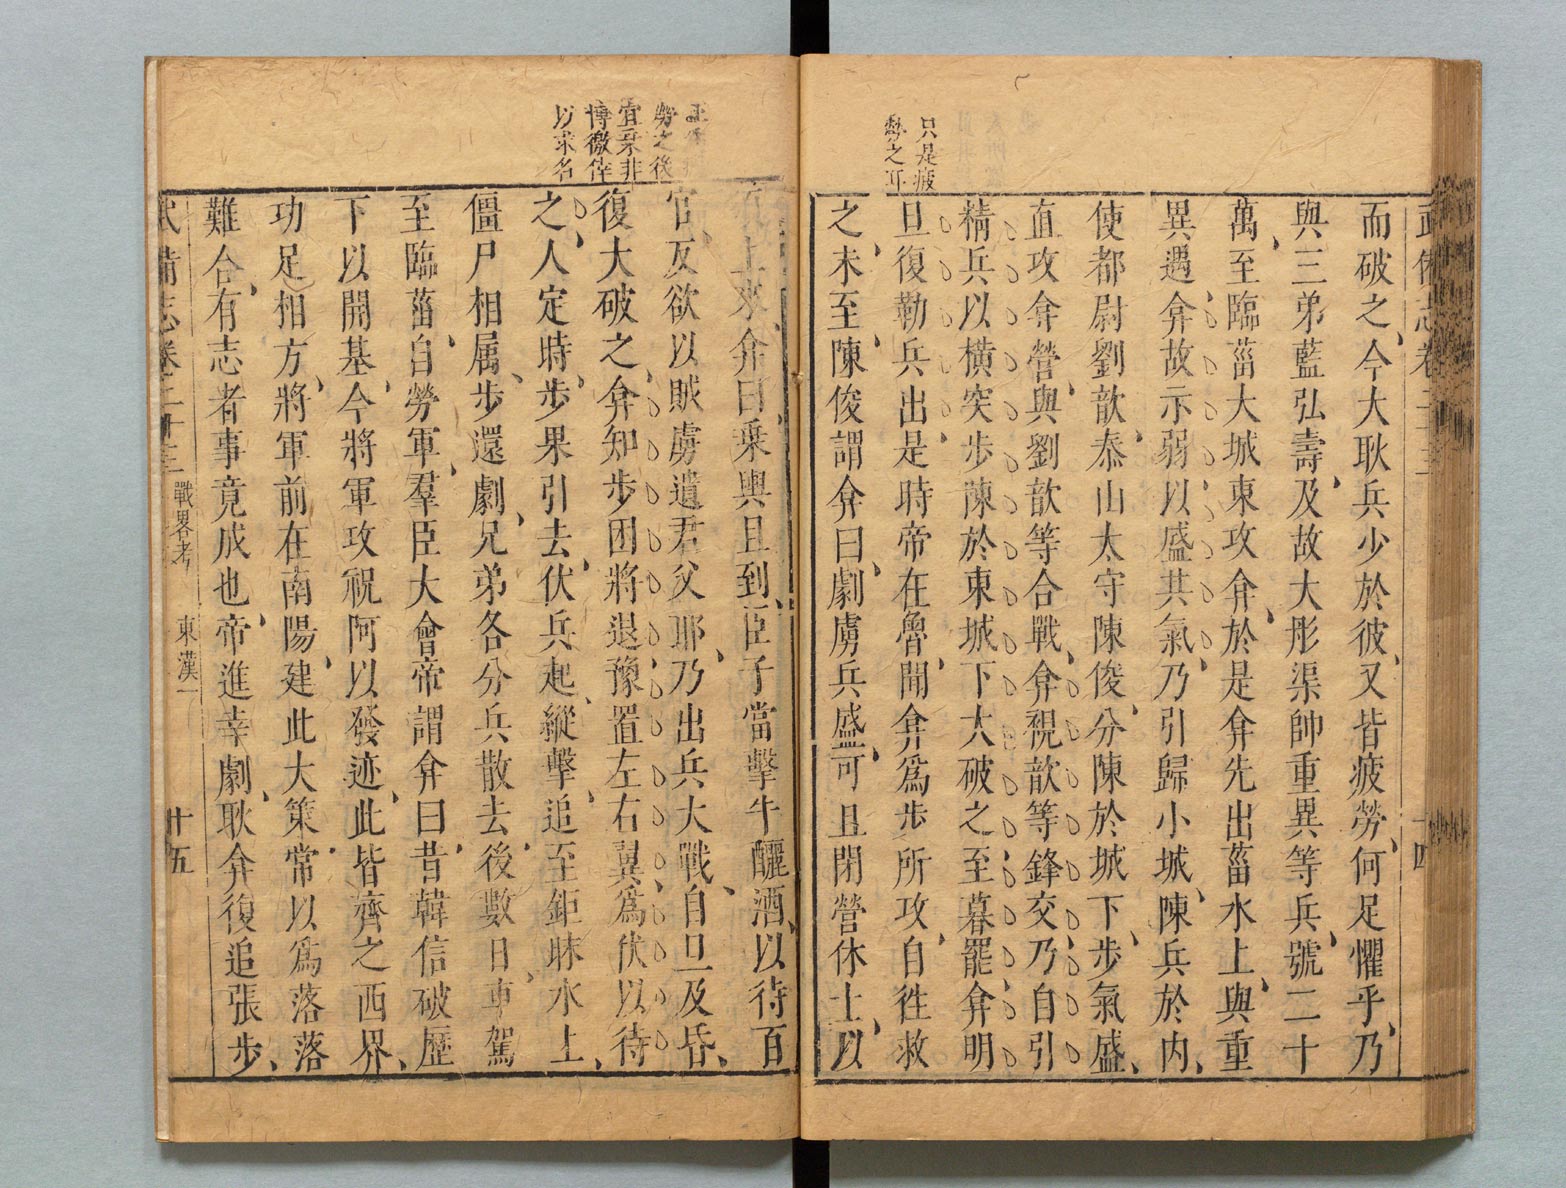 只是疲
之耳
而破之今大耿兵少於彼又皆疲勞何足懼乎乃
與三弟藍弘壽及故大彤渠帥重異等兵號二十
萬至臨菑大城東攻弇於是弇先出菑水上與重
異遇弇故示弱以盛其氣乃引歸小城陳兵於內
使都尉劉歆泰山太守陳俊分陳於城下步氣盛
直攻弇營與劉歆等合戰弇視歆等鋒交乃自引
精兵以橫突步陳於東城下大破之至暮罷弇明
旦復勒兵出是時帝在魯聞弇爲步所攻自徃救
之未至陳俊謂弇曰劇虜兵盛可且閉營休士以
勞之後
宜乘非
博徼倖
以求名
上來弇曰乗輿且到臣子當擊牛釃酒以待百
官反欲以賊虜遺君父耶乃出兵大戰自旦及昏
復大破之弇知步困將退豫置左右翼爲伏以待
之人定時步果引去伏兵起縱擊追至鉅昧水上
僵尸相属步還劇兄弟各分兵散去後數日車駕
至臨菑自勞軍羣臣大會帝謂弇曰昔韓信破歷
下以開基今將軍攻祝阿以發迹此皆齊之西界
功足相方將軍前在南陽建此大策常以爲落落
難合有志者事竟成也帝進幸劇耿弇復追張步
武備志卷二十三 戰畧考 東漢一 十五